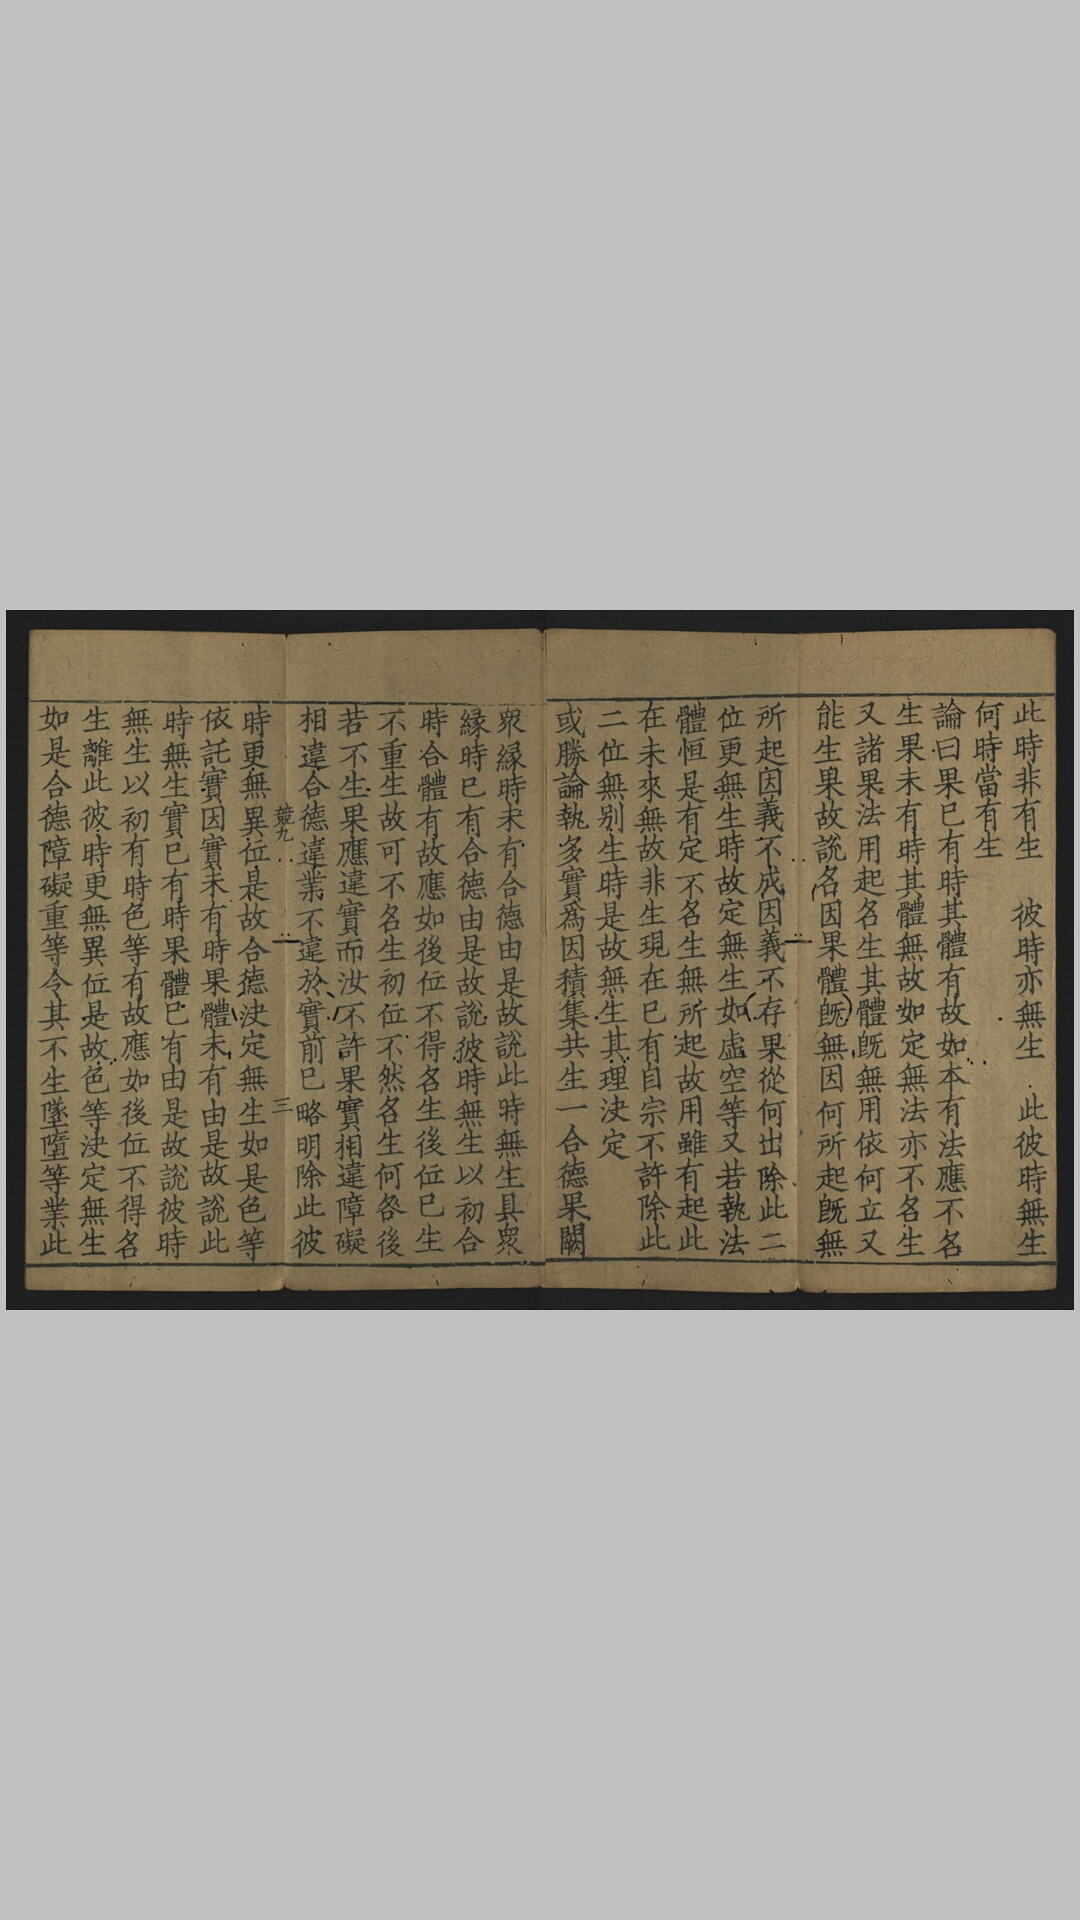 此時非有生　彼時亦無生　此彼時無生
何時當有生
論曰果已有時其體有故如本有法應不名
生果未有時其體無故如定無法亦不名生
又諸果法用起名生其體旣無用依何立又
能生果故說名因果體旣無因何所起旣無
所起因義不成因義不存果從何出除此二
位更無生時故定無生如虛空等又若執法
體恒是有定不名生無所起故用雖有起此
在未來無故非生現在已有自宗不許除此
二位無别生時是故無生其理決定
或勝論執多實爲因積集共生一合德果闕
衆緣時未有合德由是故說此時無生具衆
緣時已有合德由是故說彼時無生以初合
時合體有故應如後位不得名生後位已生
不重生故可不名生初位不然名生何咎後
若不生果應違實而汝不許果實相違障礙
相違合德違業不違於實前已略明除此彼
競九　三
時更無異位是故合德決定無生如是色等
依託實因實未有時果體未有由是故說此
時無生實已有時果體已有由是故說彼時
無生以初有時色等有故應如後位不得名
生離此彼時更無異位是故色等決定無生
如是合德障礙重等令其不生墜墮等業此